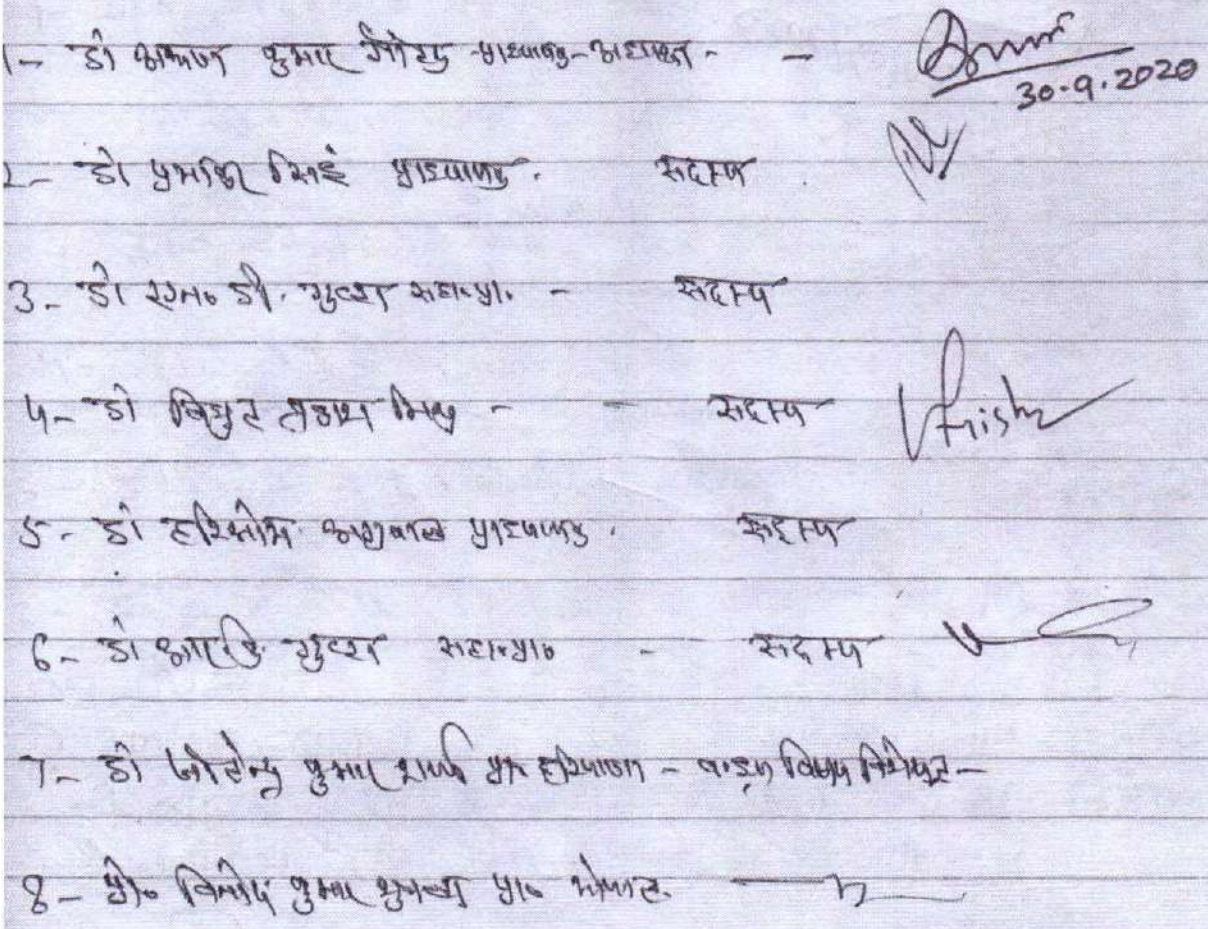 1- डॉ अरूण कुमार - प्राध्यापक - अध्यक्ष - -
30.9.2020
2- डॉ प्रभाकर सिंह प्राध्यापक. सदस्य
3- डॉ एन० डी. गुप्ता सहा.प्रा. - सदस्य
4- डॉ विद्युत प्रकाश मिश्र - - सदस्य
5- डॉ हरिओम अग्रवाल प्राध्यापक. सदस्य
6- डॉ आर.के. गुप्ता सहा.प्रा० - सदस्य
7- डॉ कुमार शर्मा हरियाणा - विषय विशेषज्ञ -
8- प्रो० विनोद कुमार प्रा० भोपाल.